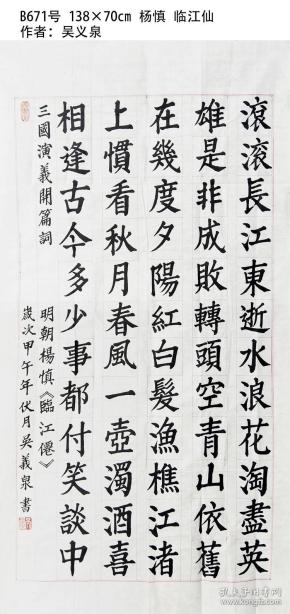 B671号 138×70cm 杨慎 临江仙
作者：吴义泉
滾滾長江東逝水浪花淘盡英
雄是非成敗轉頭空青山依舊
在幾度夕陽紅白髮漁樵江渚
上慣看秋月春風一壺濁酒喜
相逢古今多少事都付笑談中
三國演義開篇詞
明朝楊慎《臨江僊》
歲次甲午年伏月吳義泉書